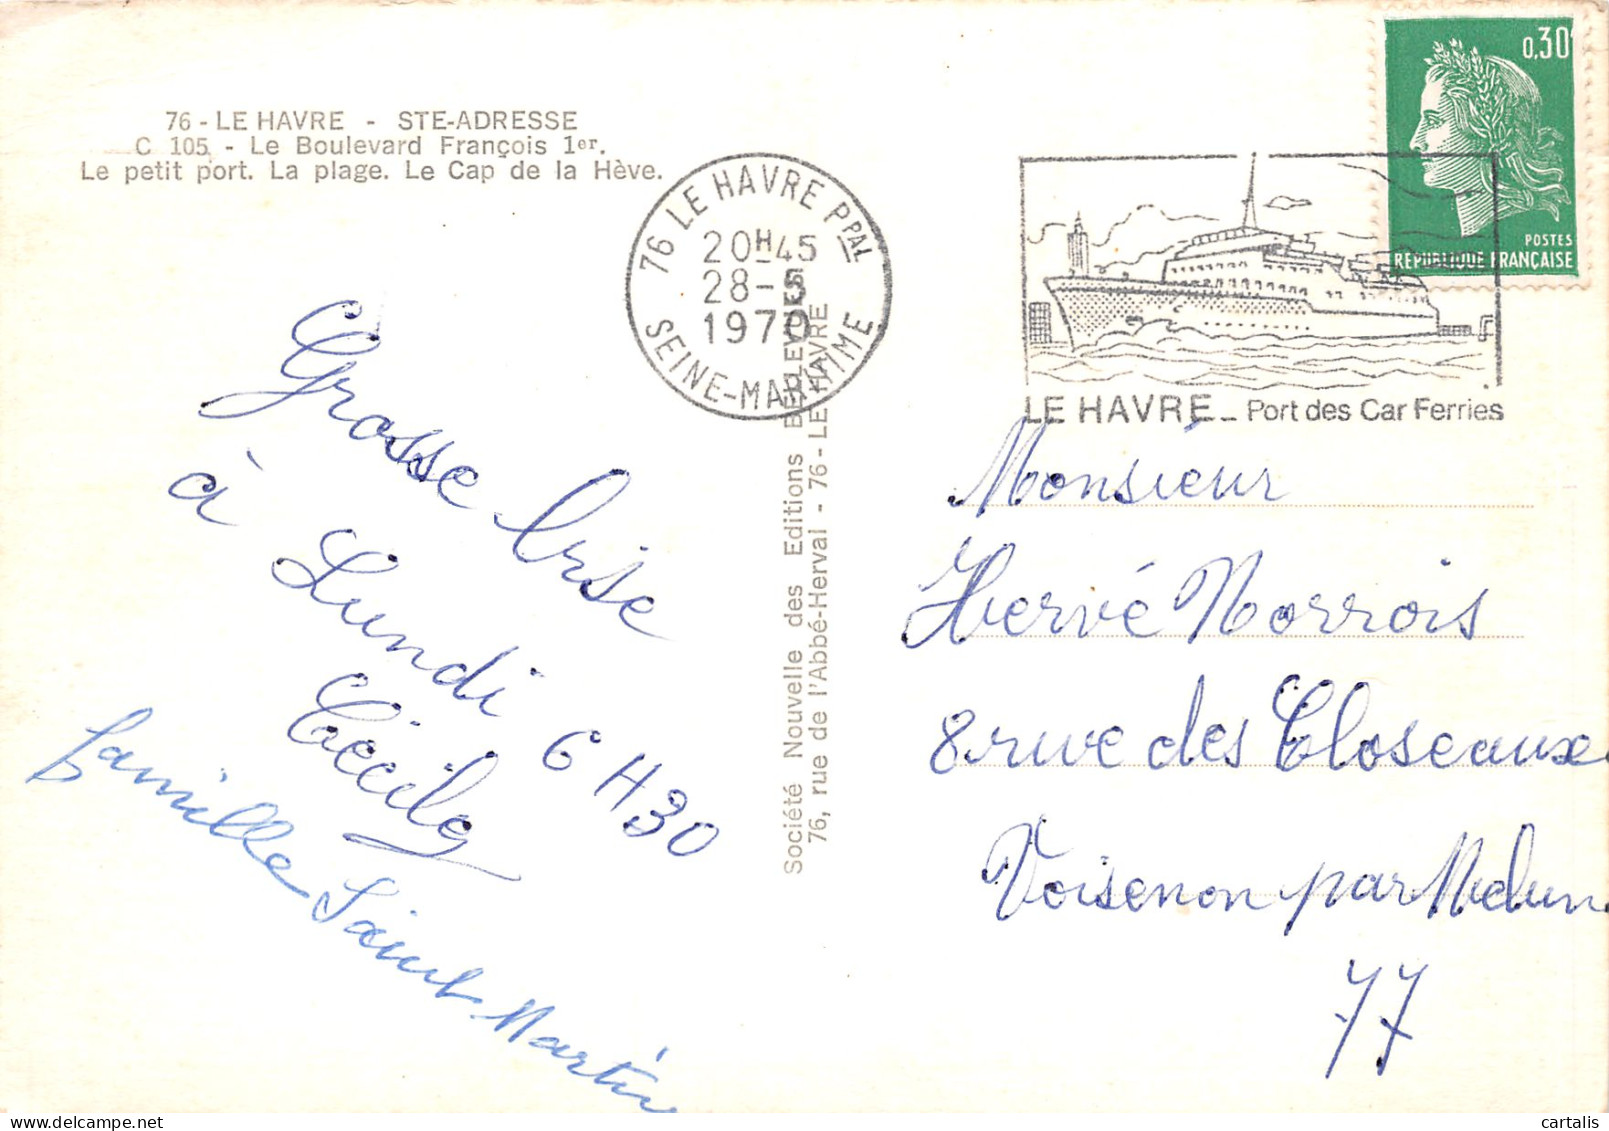 76 - LE HAVRE - STE-ADRESSE
C 105 - Le Boulevard François 1er.
Le petit port. La plage. Le Cap de la Hève.
76 LE HAVRE PPAL
20H45
28-5
1970
SEINE-MARITIME
LE HAVRE - Port des Car Ferries
0,30
POSTES
REPUBLIQUE FRANÇAISE
Grosse bise
à Lundi 6H30
Cécile
famille Saint-Martin
Société Nouvelle des Editions BELLEVUES
76, rue de l'Abbé-Herval - 76 - LE HAVRE
Monsieur
Hervé Norrois
8 rue des Closeaux
Voisenon par Melun
77
cartalis
delcampe.net